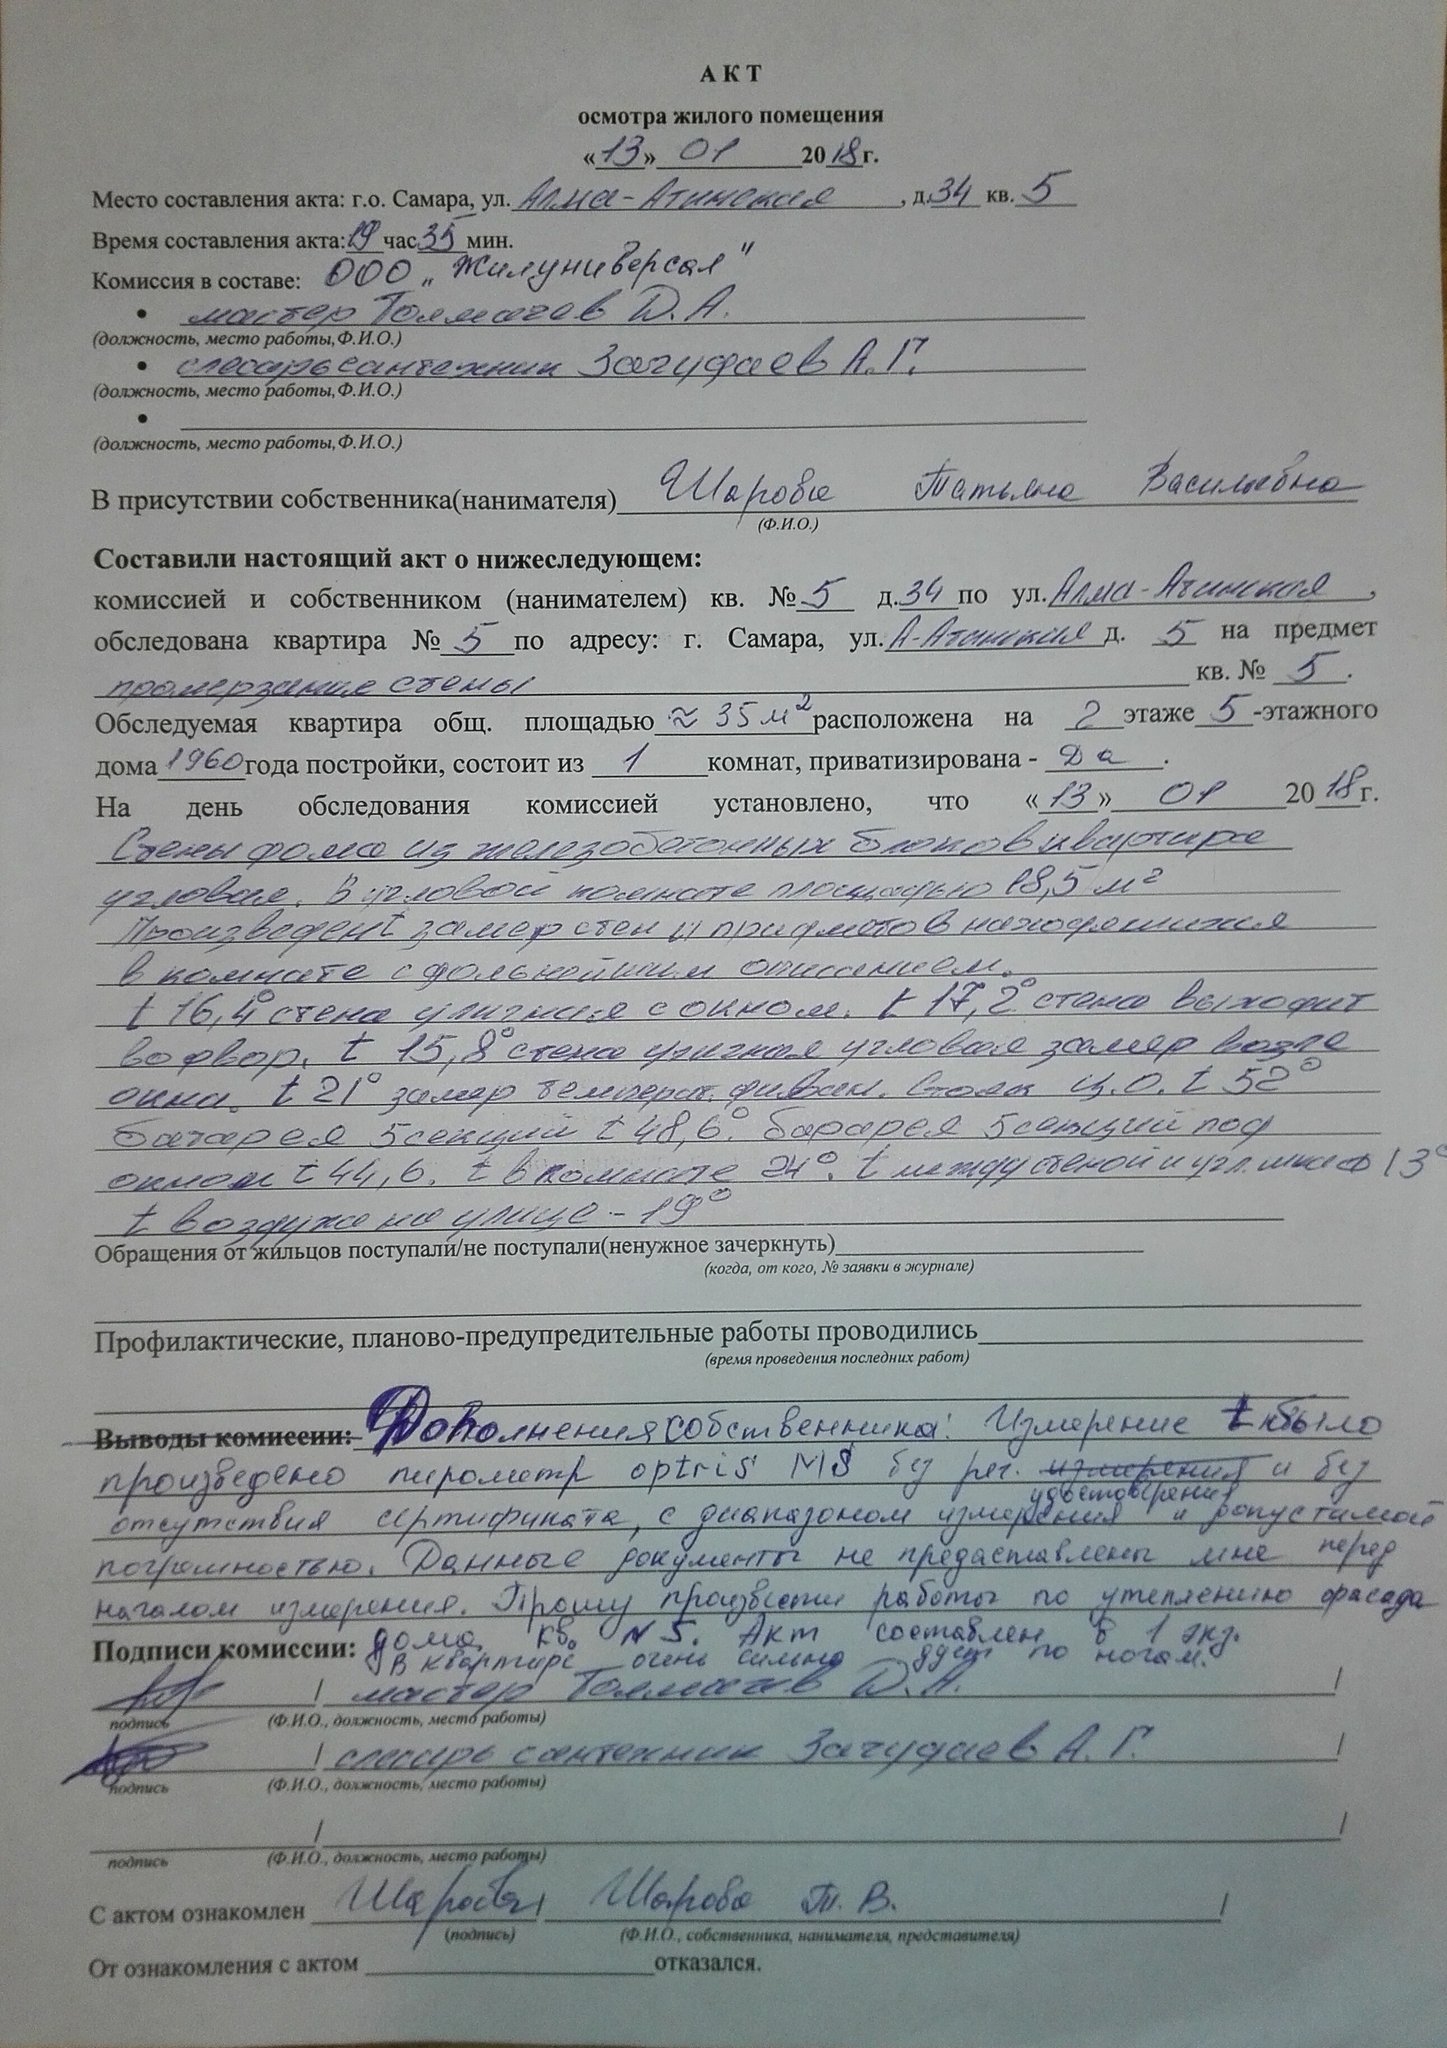 АКТ
осмотра жилого помещения
«13» 01 2018г.
Место составления акта: г.о. Самара, ул. Алма-Атинская, д.34 кв. 5
Время составления акта: 19 час 35 мин.
Комиссия в составе: ООО „Жилуниверсал"
• мастер Толмачев Д.А.
(должность, место работы,Ф.И.О.)
• слесарь сантехник Зачудаев А.Г.
(должность, место работы,Ф.И.О.)
•
(должность, место работы,Ф.И.О.)
В присутствии собственника(нанимателя) Шарова Татьяна Васильевна
(Ф.И.О.)
Составили настоящий акт о нижеследующем:
комиссией и собственником (нанимателем) кв. № 5 д.34 по ул. Алма-Атинская,
обследована квартира № 5 по адресу: г. Самара, ул. А-Атинская д. 5 на предмет
промерзания стены кв. № 5.
Обследуемая квартира общ. площадью ≈ 35 м² расположена на 2 этаже 5-этажного
дома 1960 года постройки, состоит из 1 комнат, приватизирована - Да.
На день обследования комиссией установлено, что «13» 01 2018г.
Стены дома из железобетонных блоков квартира
угловая. В угловой комнате площадью 18,5 м²
Произведен замер стен и придметов находящихся
в комнате с дольнейшим описанием.
t 16,4° стена уличная с окном. t 17,2° стена выходит
во двор. t 15,8° стена уличная угловая замер возле
окна. t 21° замер температ. диван. Стояк Ц.О. t 52°
батарея 5 секций t 48,6°. барарея 5 секций под
окном t 44,6. t в комнате 24°. t между стеной и угл. шкаф 13°
t воздуха на улице - 19°
Обращения от жильцов поступали/не поступали(ненужное зачеркнуть)
(когда, от кого, № заявки в журнале)
Профилактические, планово-предупредительные работы проводились
(время проведения последних работ)
Выводы комиссии: Дополнения собственника: Измерение t было
произведено пирометр optris MS без рег. измерения и без
удостоверения
отсутствия сертификата, с диапазоном измерения и допустимой
погрешностью. Данные документы не предаставлены мне перед
началом измерения. Прошу произвести работы по утеплению фасада
Подписи комиссии: дома кв. N 5. Акт составлен в 1 экз.
В квартире очень сильно дует по ногам.
/ мастер Толмачев Д.А. /
подпись (Ф.И.О., должность, место работы)
/ слесарь сантехник Зачудаев А.Г. /
подпись (Ф.И.О., должность, место работы)
/ /
подпись (Ф.И.О., должность, место работы)
С актом ознакомлен Шарова / Шарова Т.В. /
(подпись) (Ф.И.О., собственника, нанимателя, представителя)
От ознакомления с актом отказался.